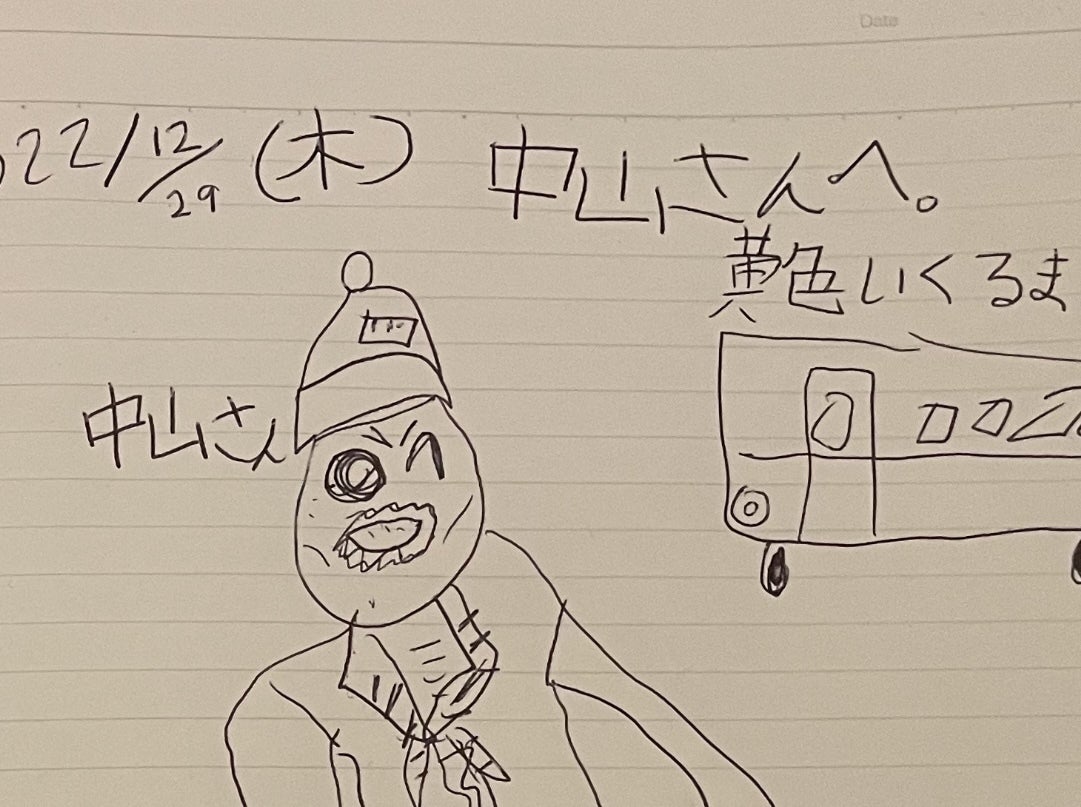 Date
022/12/29(木) 中山さんへ。
黄色いくるま
中山さん